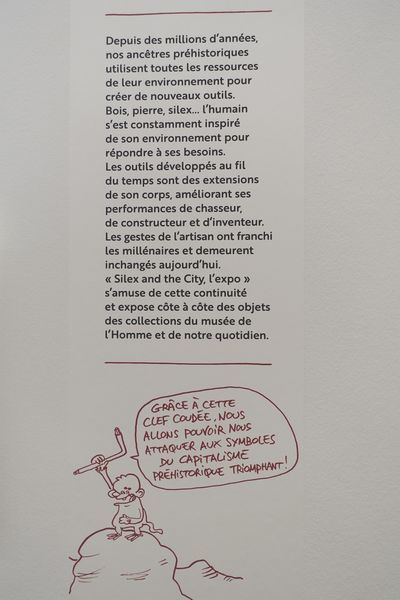 Depuis des millions d'années,
nos ancêtres préhistoriques
utilisent toutes les ressources
de leur environnement pour
créer de nouveaux outils.
Bois, pierre, silex... l'humain
s'est constamment inspiré
de son environnement pour
répondre à ses besoins.
Les outils développés au fil
du temps sont des extensions
de son corps, améliorant ses
performances de chasseur,
de constructeur et d'inventeur.
Les gestes de l'artisan ont franchi
les millénaires et demeurent
inchangés aujourd'hui.
« Silex and the City, l'expo »
s'amuse de cette continuité
et expose côte à côte des objets
des collections du musée de
l'Homme et de notre quotidien.
GRÂCE À CETTE
CLEF COUDÉE, NOUS
ALLONS POUVOIR NOUS
ATTAQUER AUX SYMBOLES
DU CAPITALISME
PRÉHISTORIQUE TRIOMPHANT!